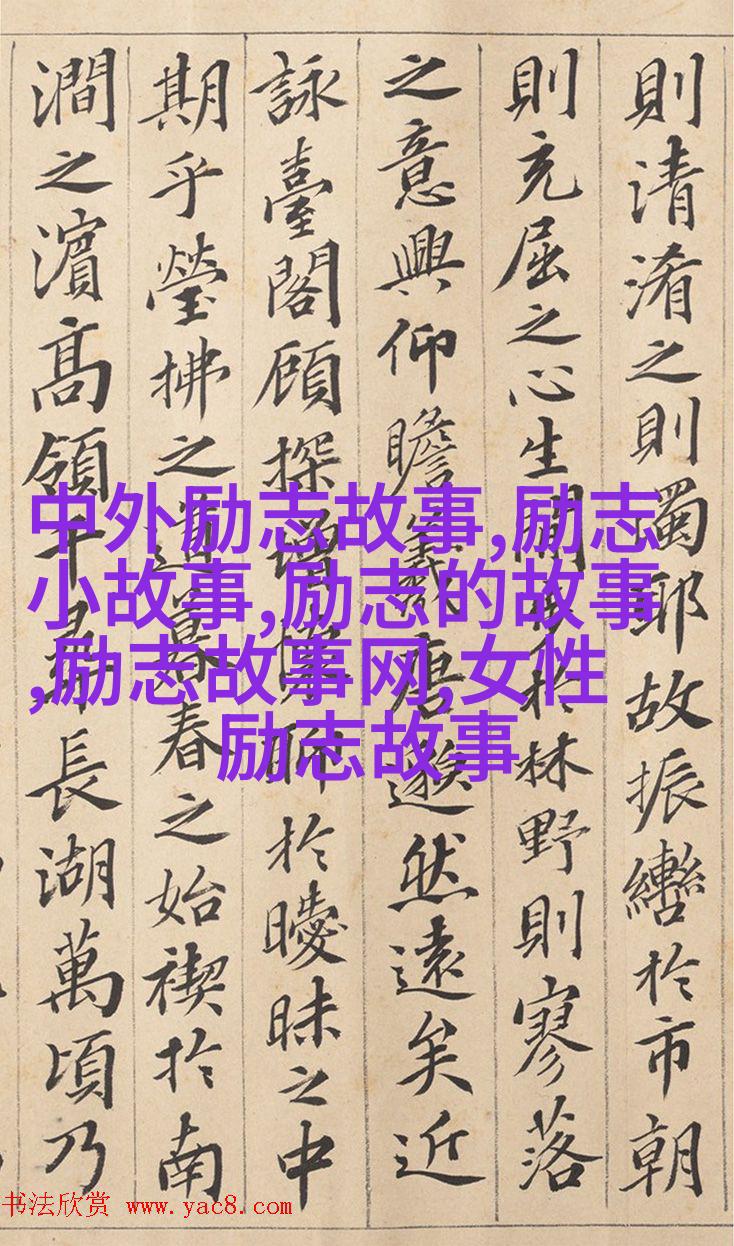 則清淆之則濁耶故振轡於市朝
則充屈之心生閒步於林野則寥落
之意興仰瞻羲唐邈然遠矣近
詠臺閣顧探增懷聊於曖昧之中
期乎瑩拂之道暮春之始禊於南
澗之濱高領千尋長湖萬頃乃
中外励志故事,励志
小故事,励志的故事
,励志故事网,女性
励志故事
书法欣赏 www.yac8.com